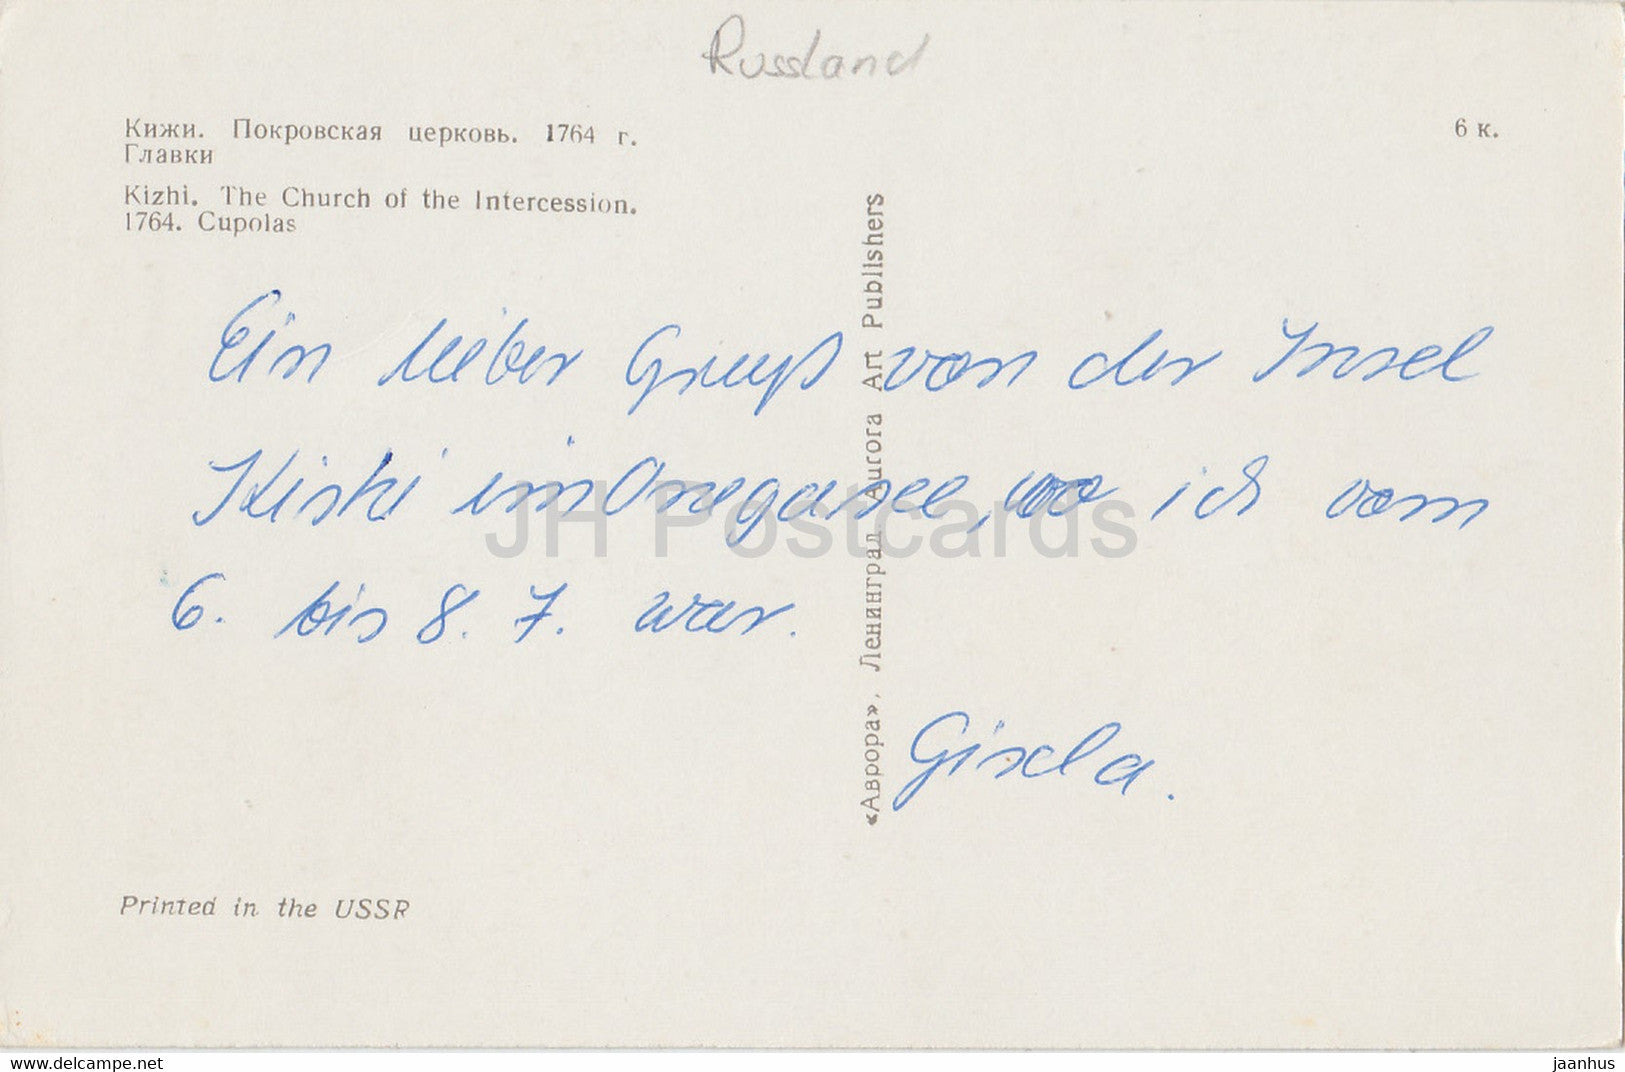 Russland
Кижи. Покровская церковь. 1764 г.
Главки
6 к.
Kizhi. The Church of the Intercession.
1764. Cupolas
Ein lieber Gruß von der Insel
Kishi im Onegasee, wo ich vom
6. bis 8. 7. war.
Gisela.
«Аврора», Ленинград. Aurora Art Publishers
JH Postcards
Printed in the USSR
www.delcampe.net
jaanhus